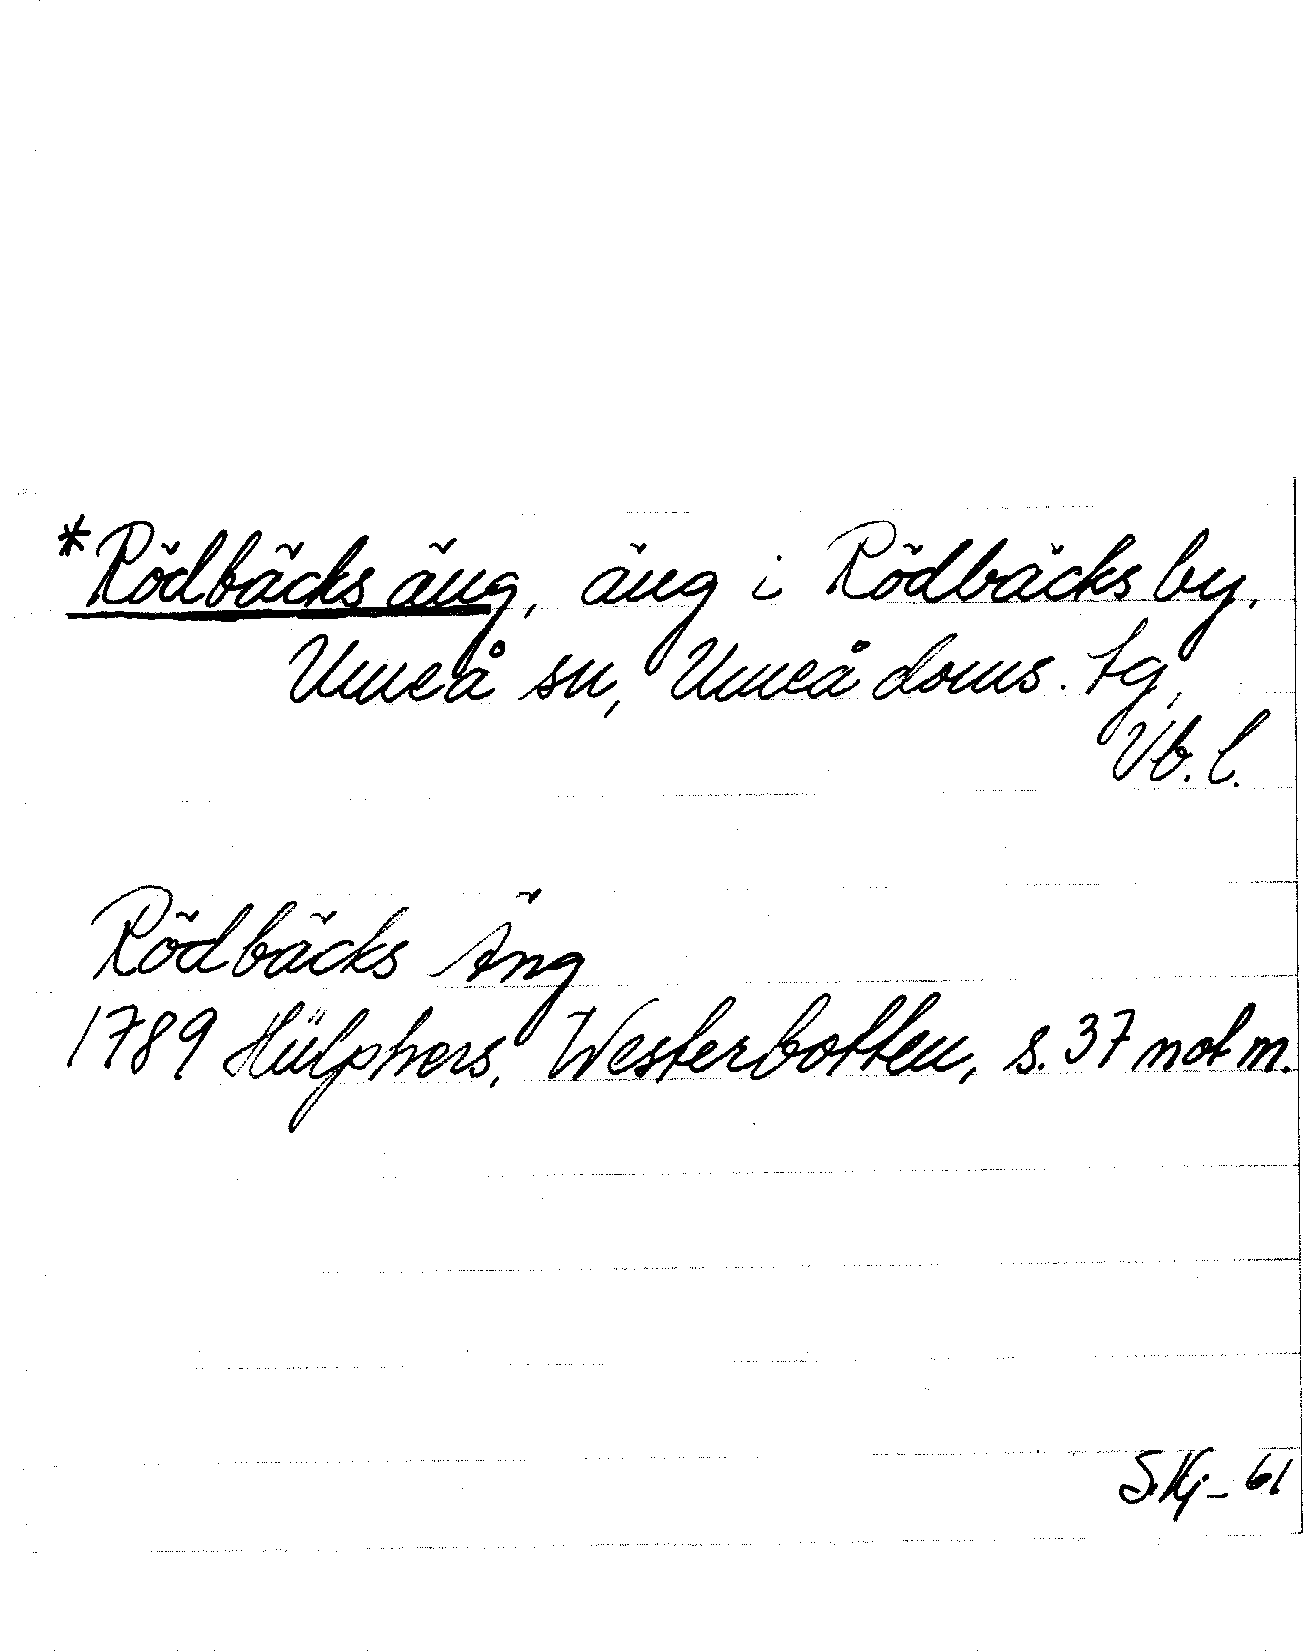 *Rödbäcks äng, äng i Rödbäcks by,
Umeå sn, Umeå doms. tg,
Vb. l.
Rödbäcks Äng
1789 Hülphers, Westerbotten, s. 37 not m.
S.Kj - 61